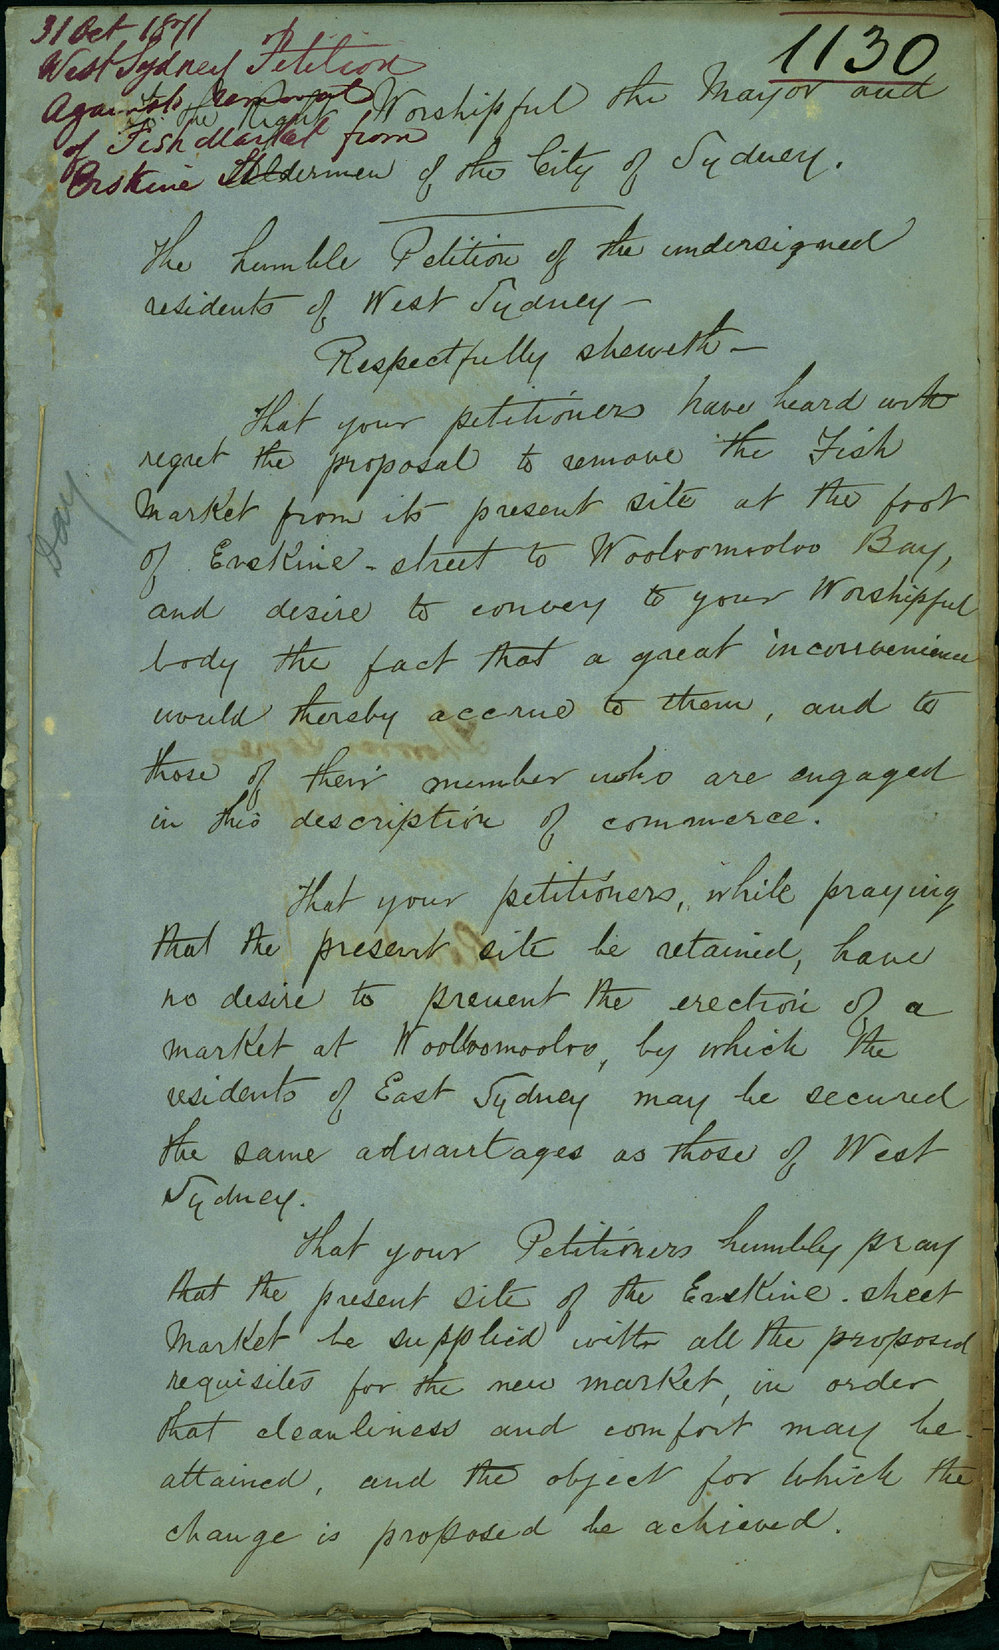 31 Oct 1871
West Sydney Petition
Against removal
of Fish Market from
Erskine St
1130
To the Right Worshipful the Mayor and
Aldermen of the City of Sydney.
The humble Petition of the undersigned
residents of West Sydney —
Respectfully sheweth —
That your petitioners have heard with
regret the proposal to remove the Fish
Market from its present site at the foot
of Erskine-street to Woolloomooloo Bay,
and desire to convey to your Worshipful
body the fact that a great inconvenience
would thereby accrue to them, and to
those of their number who are engaged
in this description of commerce.
That your petitioners, while praying
that the present site be retained, have
no desire to prevent the erection of a
market at Woolloomooloo, by which the
residents of East Sydney may be secured
the same advantages as those of West
Sydney.
That your Petitioners humbly pray
that the present site of the Erskine-street
Market be supplied with all the proposed
requisites for the new market, in order
that cleanliness and comfort may be
attained, and the object for which the
change is proposed be achieved.
Day